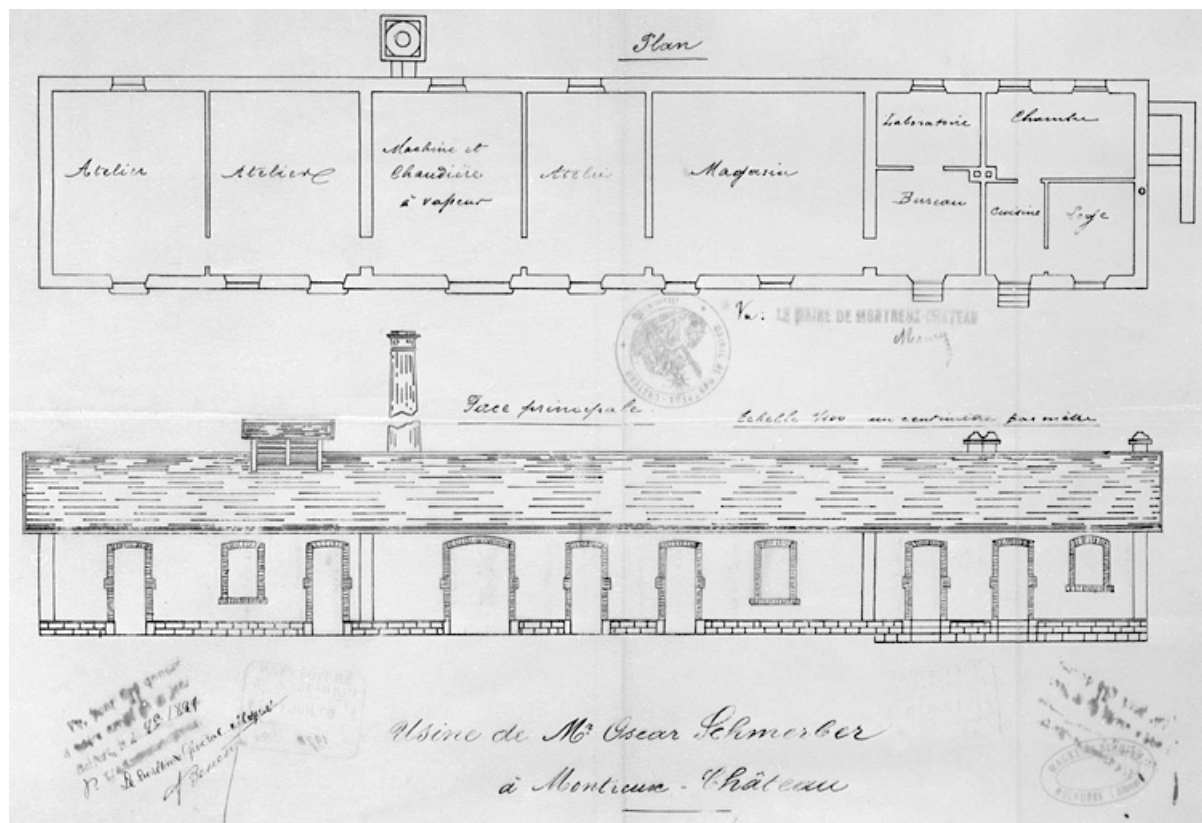 Plan
Laboratoire
Chambre
Atelier
Atelier
Machine et
Chaudière
à vapeur
Atelier
Magasin
Bureau
Cuisine
Loge
Vu: LE MAIRE DE MONTREUX-CHATEAU
Face principale.
Echelle 1/100 un centimètre par mètre
Le Secrétaire Général délégué
Usine de Mr Oscar Schmerber
à Montreux-Château